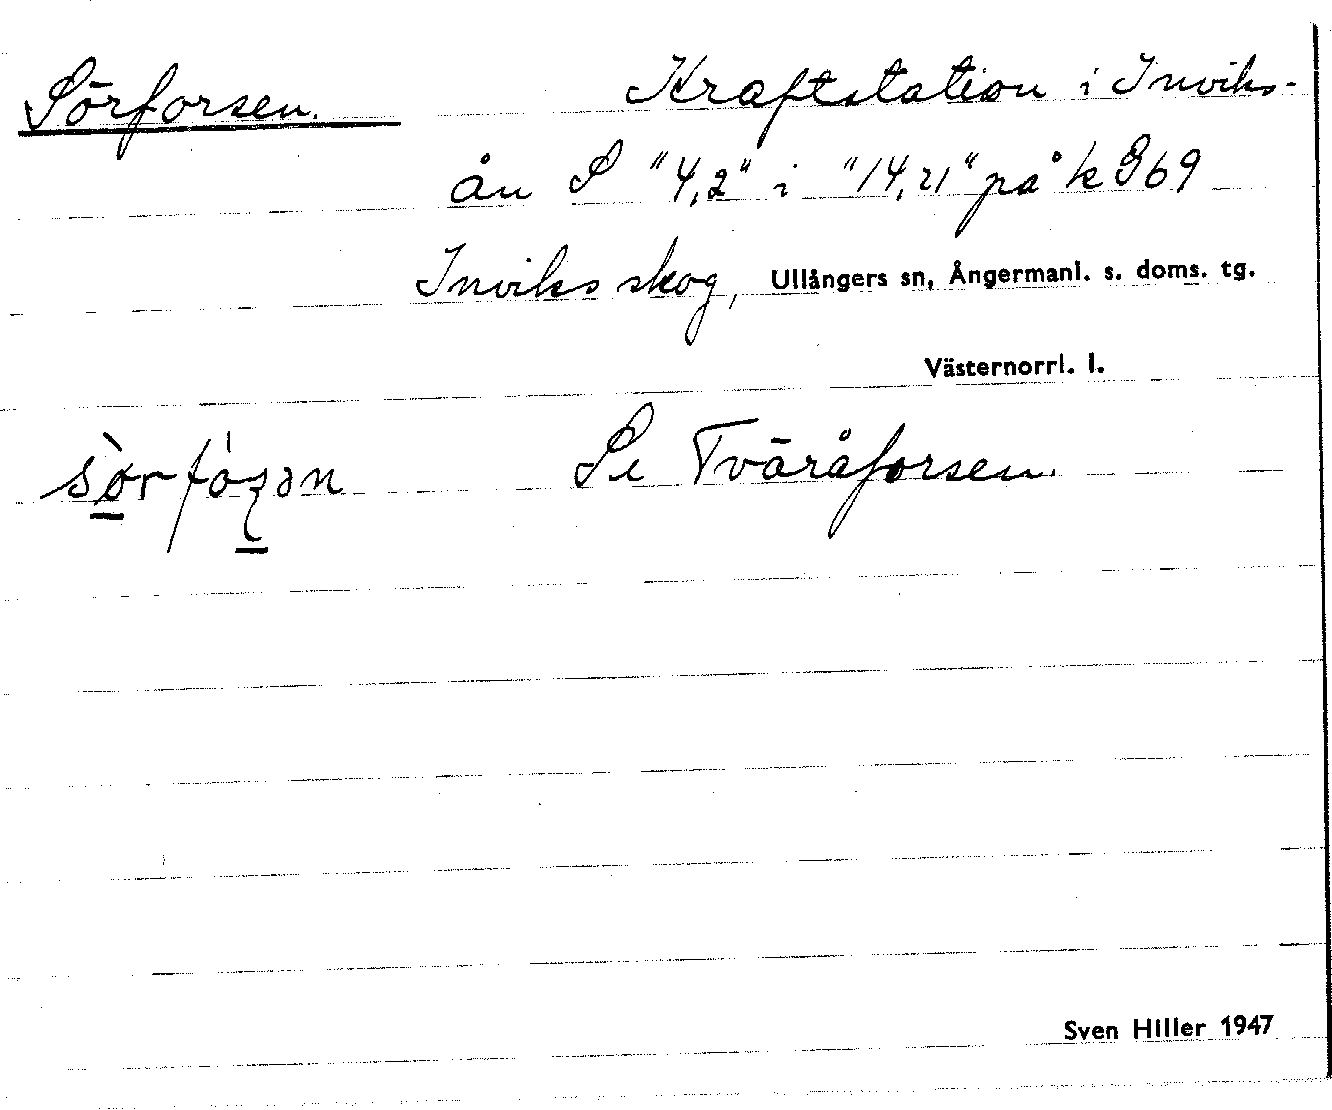 Sörforsen. Kraftstation i Inviks-
ån S "4,2" i "14,21" på k 969
Inviks skog, Ullångers sn, Ångermanl. s. doms. tg.
Västernorrl. l.
Se Tväråforsen.
Sven Hiller 1947